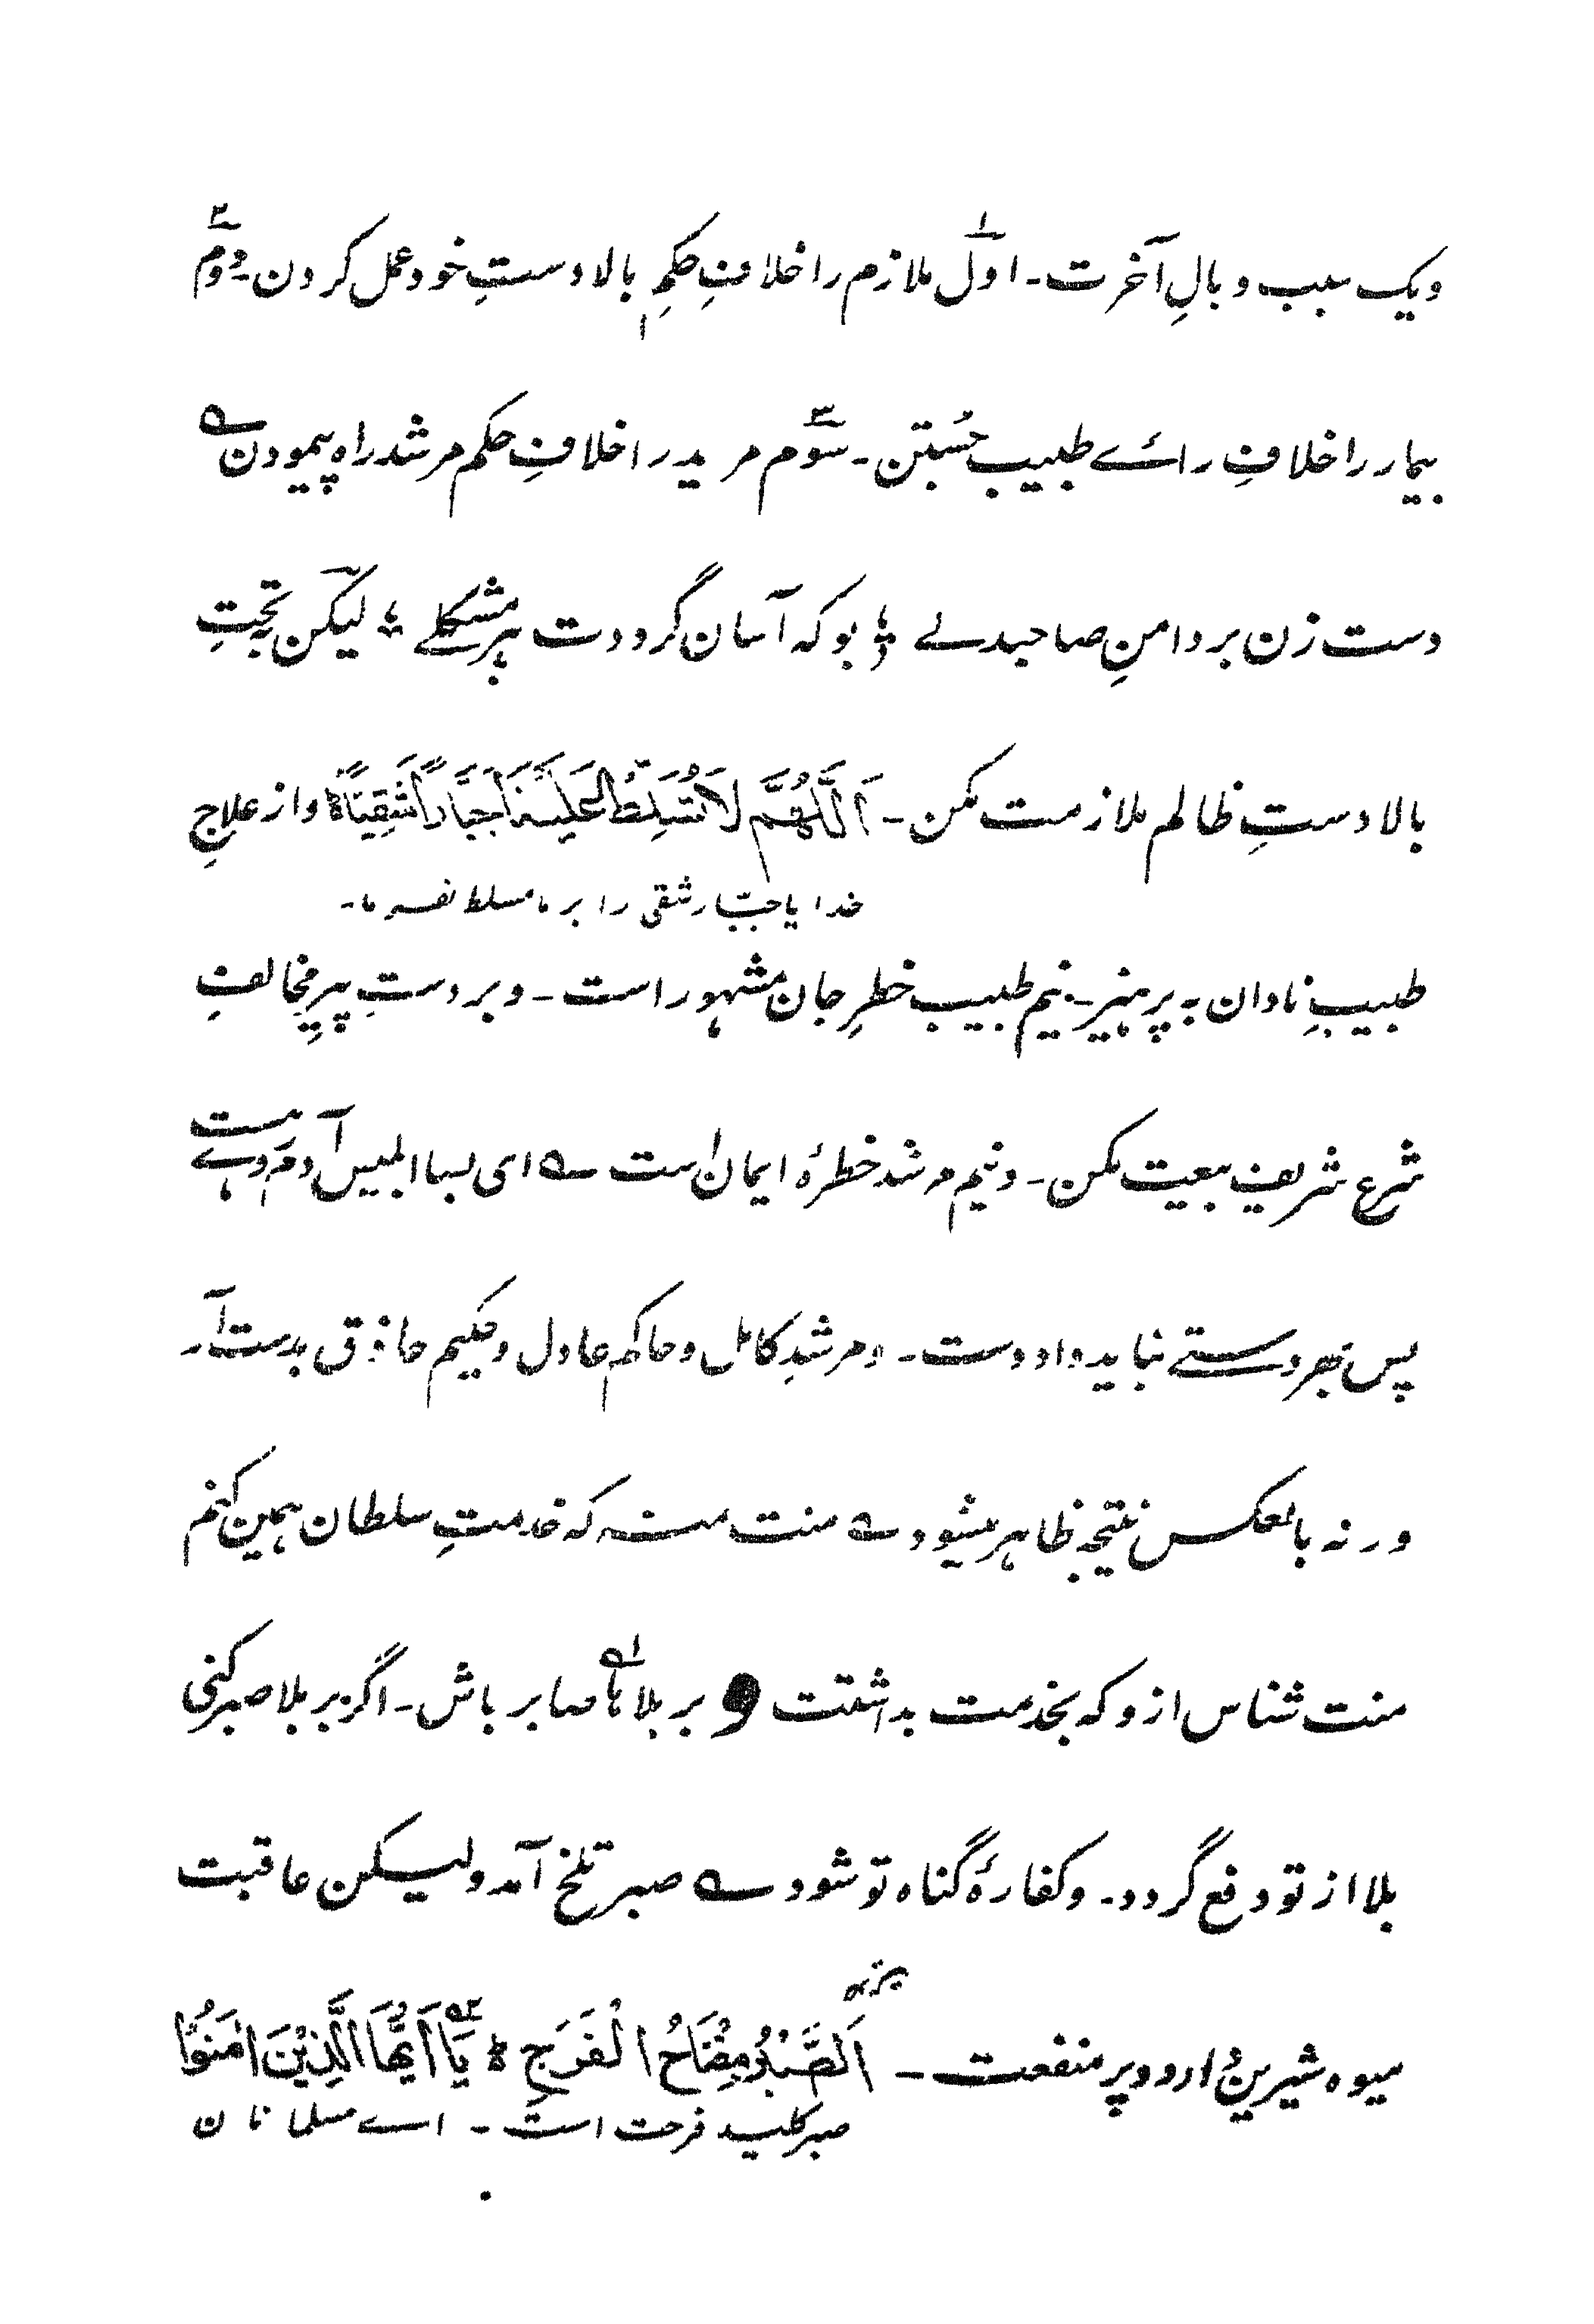 ویک سبب وبالِ آخرت۔ اوّل ملازم را خلافِ حکمِ بالادستِ خود عمل کردن۔ دوّم
بیمار را خلافِ رائے طبیب جُستن۔ سوّم مرید را خلافِ حکم مرشد راہ پیمودن ے
دست زن بر دامنِ صاحبدلے ؛ بو کہ آسان گرددت ہر مشکلے ؛ لیکن بہ تحتِ
بالادستِ ظالم ملازمت مکن۔ اَللّٰهُمَّ لَا تُسَلِّطْ عَلَيْنَا جَبَّارًا شَقِيًّا ؕ واز علاجِ
خدایا جبّار شقی را بر ما مسلط نفرما۔
طبیبِ نادان بہ پرہیز۔ نیم طبیب خطرِ جان مشہور است۔ و بر دستِ پیرِ مخالفِ
شرع شریف بیعت مکن۔ و نیم مرشد خطرۂ ایمان است ے ای بسا ابلیس آدم روئے ہست
پس بہر دستے نباید داد دست۔ و مرشدِ کامل و حاکم عادل و حکیم حاذق بدست آر۔
ورنہ بالعکس نتیجہ ظاہر میشود ے منت منہ کہ خدمتِ سلطان ہمین کنم
منت شناس ازو کہ بخدمت بداشتت و بر بلاہا صابر باش۔ اگر بر بلا صبر کنی
بلا از تو دفع گردد۔ و کفارۂ گناہ تو شود ے صبر تلخ آمد ولیکن عاقبت
میوہ شیرین دارد پر منفعت۔ اَلصَّبْرُ مِفْتَاحُ الْفَرَجِ ؕ يَا اَيُّهَا الَّذِيْنَ اٰمَنُوْا
صبر کلید فرحت است۔ اے مسلمانان